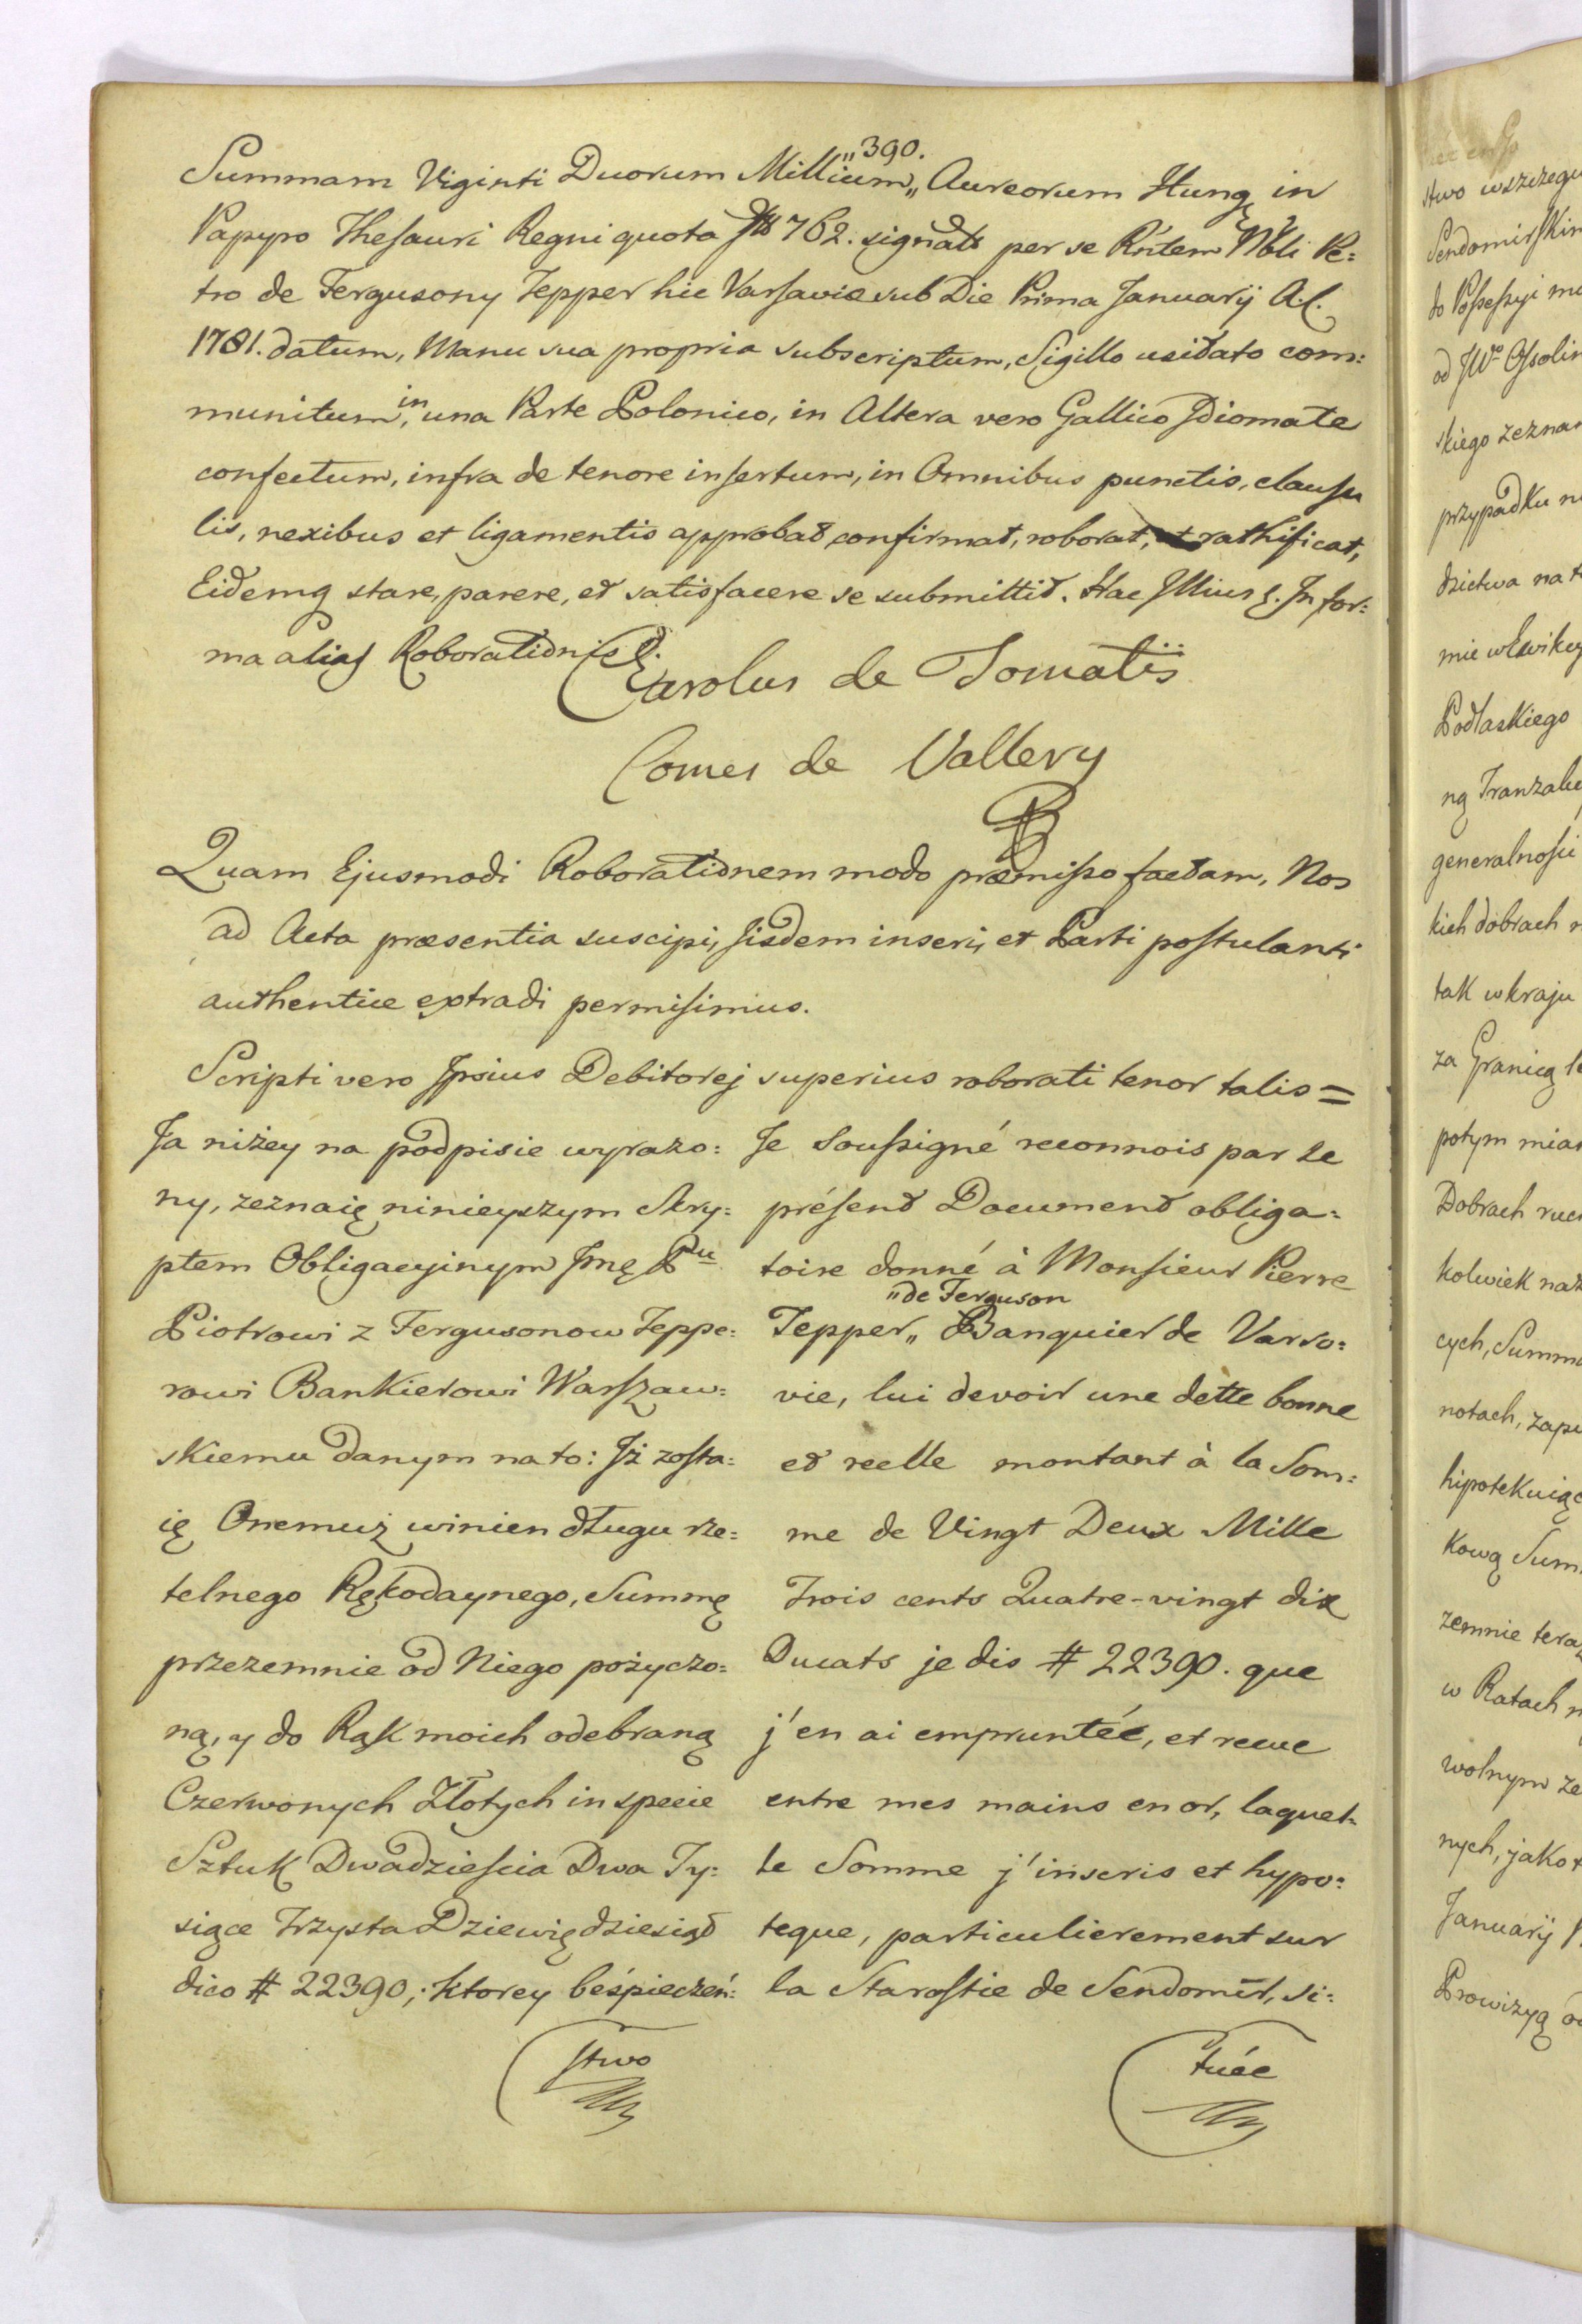 „390.
Summam Viginti Duorum Millium„ Aureorum Hung. in
Papyro Thesauri Regni quota 762. signato per se Rntem Nobli Pe:
tro de Fergusony Tepper hic Varsavie sub Die Prima Januarij A. C.
1781. datum, Manu sua propria subscriptum, Sigillo usitato com:
munitum, in una Parte Polonico, in Altera vero Gallico Idiomate
confectum, infra de tenore insertum, in Omnibus punctis, clausu
lis, nexibus et ligamentis approbat confirmat, roborat, rathificat,
Eidemq stare, parere, et satisfacere se submittit. Hac Illius ę. In for:
ma alias Roborationis ę.
Carolus de Tomatis
Comes de Vallery
Quam Ejusmodi Roborationem modo præmisso factam, Nos
ad Acta præsentia suscipi, Iisdem inseri, et Parti postulanti
authentice extradi permisimus.
Scripti vero Ipsius Debitorej superius roborati tenor talis =
Ja niżey na podpisie wyrazo:
ny, zeznaię ninieyszym Skry:
ptem Obligacyinym Jmę Pu
Piotrowi z Fergusonow Teppe:
rowi Bankierowi Warszaw:
skiemu danym na to: Iż zosta:
ię Onemuż winien długu rze:
telnego Rękodaynego, Summę
przezemnie od Niego pożyczo:
ną, y do Rąk moich odebraną
Czerwonych Złotych in specie
Sztuk Dwadzieścia Dwa Ty:
siące Trzysta Dziewiędziesiąt
dico # 22390; ktorey beśpieczeń:
stwo
Je Soussigné reconnois par le
présent Document obliga:
toire donné à Monsieur Pierre
„de Ferguson
Tepper„ Banquier de Varso:
vie, lui devoir une dette bonne
et reelle montant à la Som:
me de Vingt Deux Mille
Trois cents Quatre-vingt dix
Ducats je dis # 22390. que
j'en ai empruntée, et recue
entre mes mains en or, laquel:
le Somme j'inscris et hypo:
teque, particulierement sur
la Starostie de Sendomir, si:
tuée
stwo wszczegu
Sendomirskim
do Possessyi mo
od JWo Ossolin
skiego zeznan
przypadku n
dzictwa na
mie
Podlaskiego
ną Tranzak
generalności
kich dobrach
tak w kraju
za Granicą
potym mia
Dobrach ruc
kolwiek na
cych, Summ
notach, zap
hipotekuiąc
kową Sum
zemnie tera
w Ratach
wolnym
nych, jako
Januarij
Prowizyą